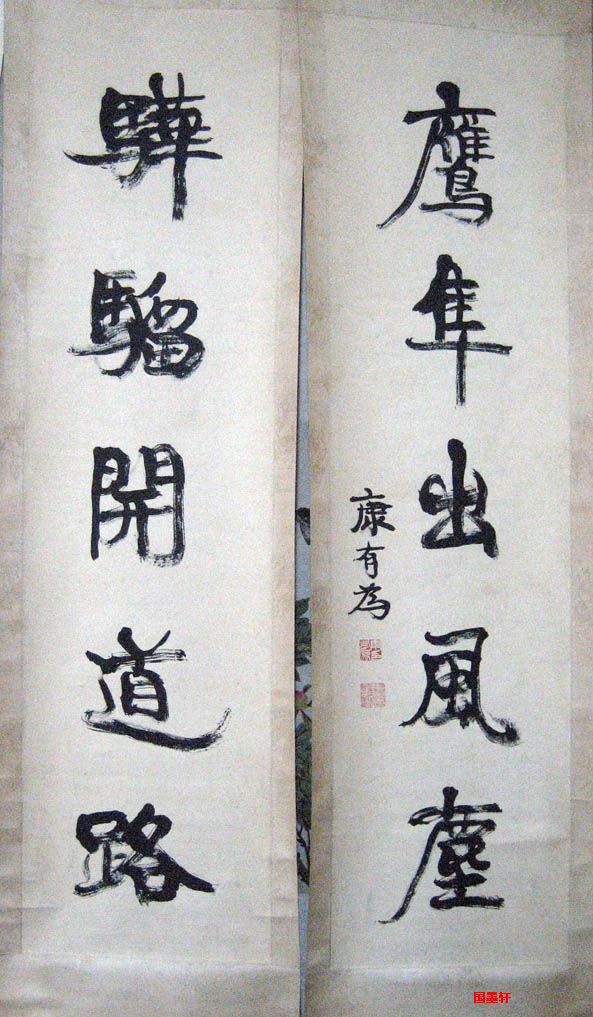 鷹隼出風塵
康有為
驊騮開道路
国墨轩